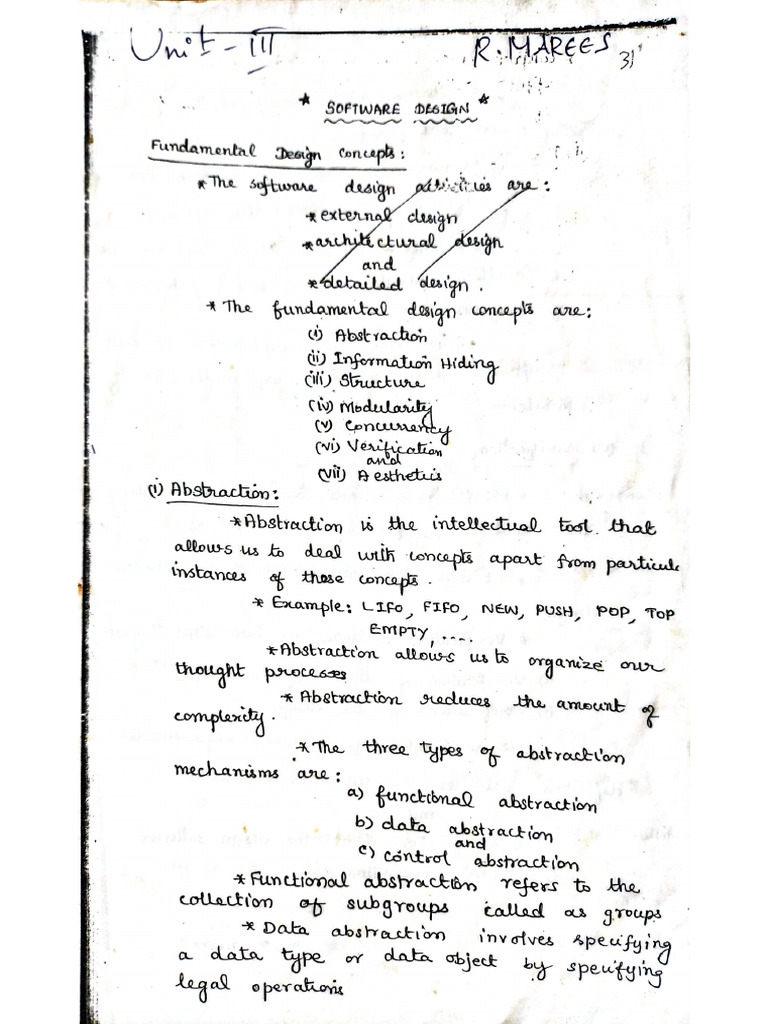 Unit - III
R. MAREES 31
* SOFTWARE DESIGN *
Fundamental Design Concepts:
* The software design activities are:
* external design
* architectural design
and
* detailed design.
* The fundamental design concepts are:
(i) Abstraction
(ii) Information Hiding
(iii) Structure
(iv) Modularity
(v) Concurrency
(vi) Verification
and
(vii) Aesthetics
(i) Abstraction:
* Abstraction is the intellectual tool that
allows us to deal with concepts apart from particula
instances of those concepts.
* Example: LIFO, FIFO, NEW, PUSH, POP, TOP
EMPTY, ....
* Abstraction allows us to organize our
thought processes
* Abstraction reduces the amount of
complexity.
* The three types of abstraction
mechanisms are:
a) functional abstraction
b) data abstraction
and
c) control abstraction
* Functional abstraction refers to the
collection of subgroups called as groups
* Data abstraction involves specifying
a data type or data object by specifying
legal operations